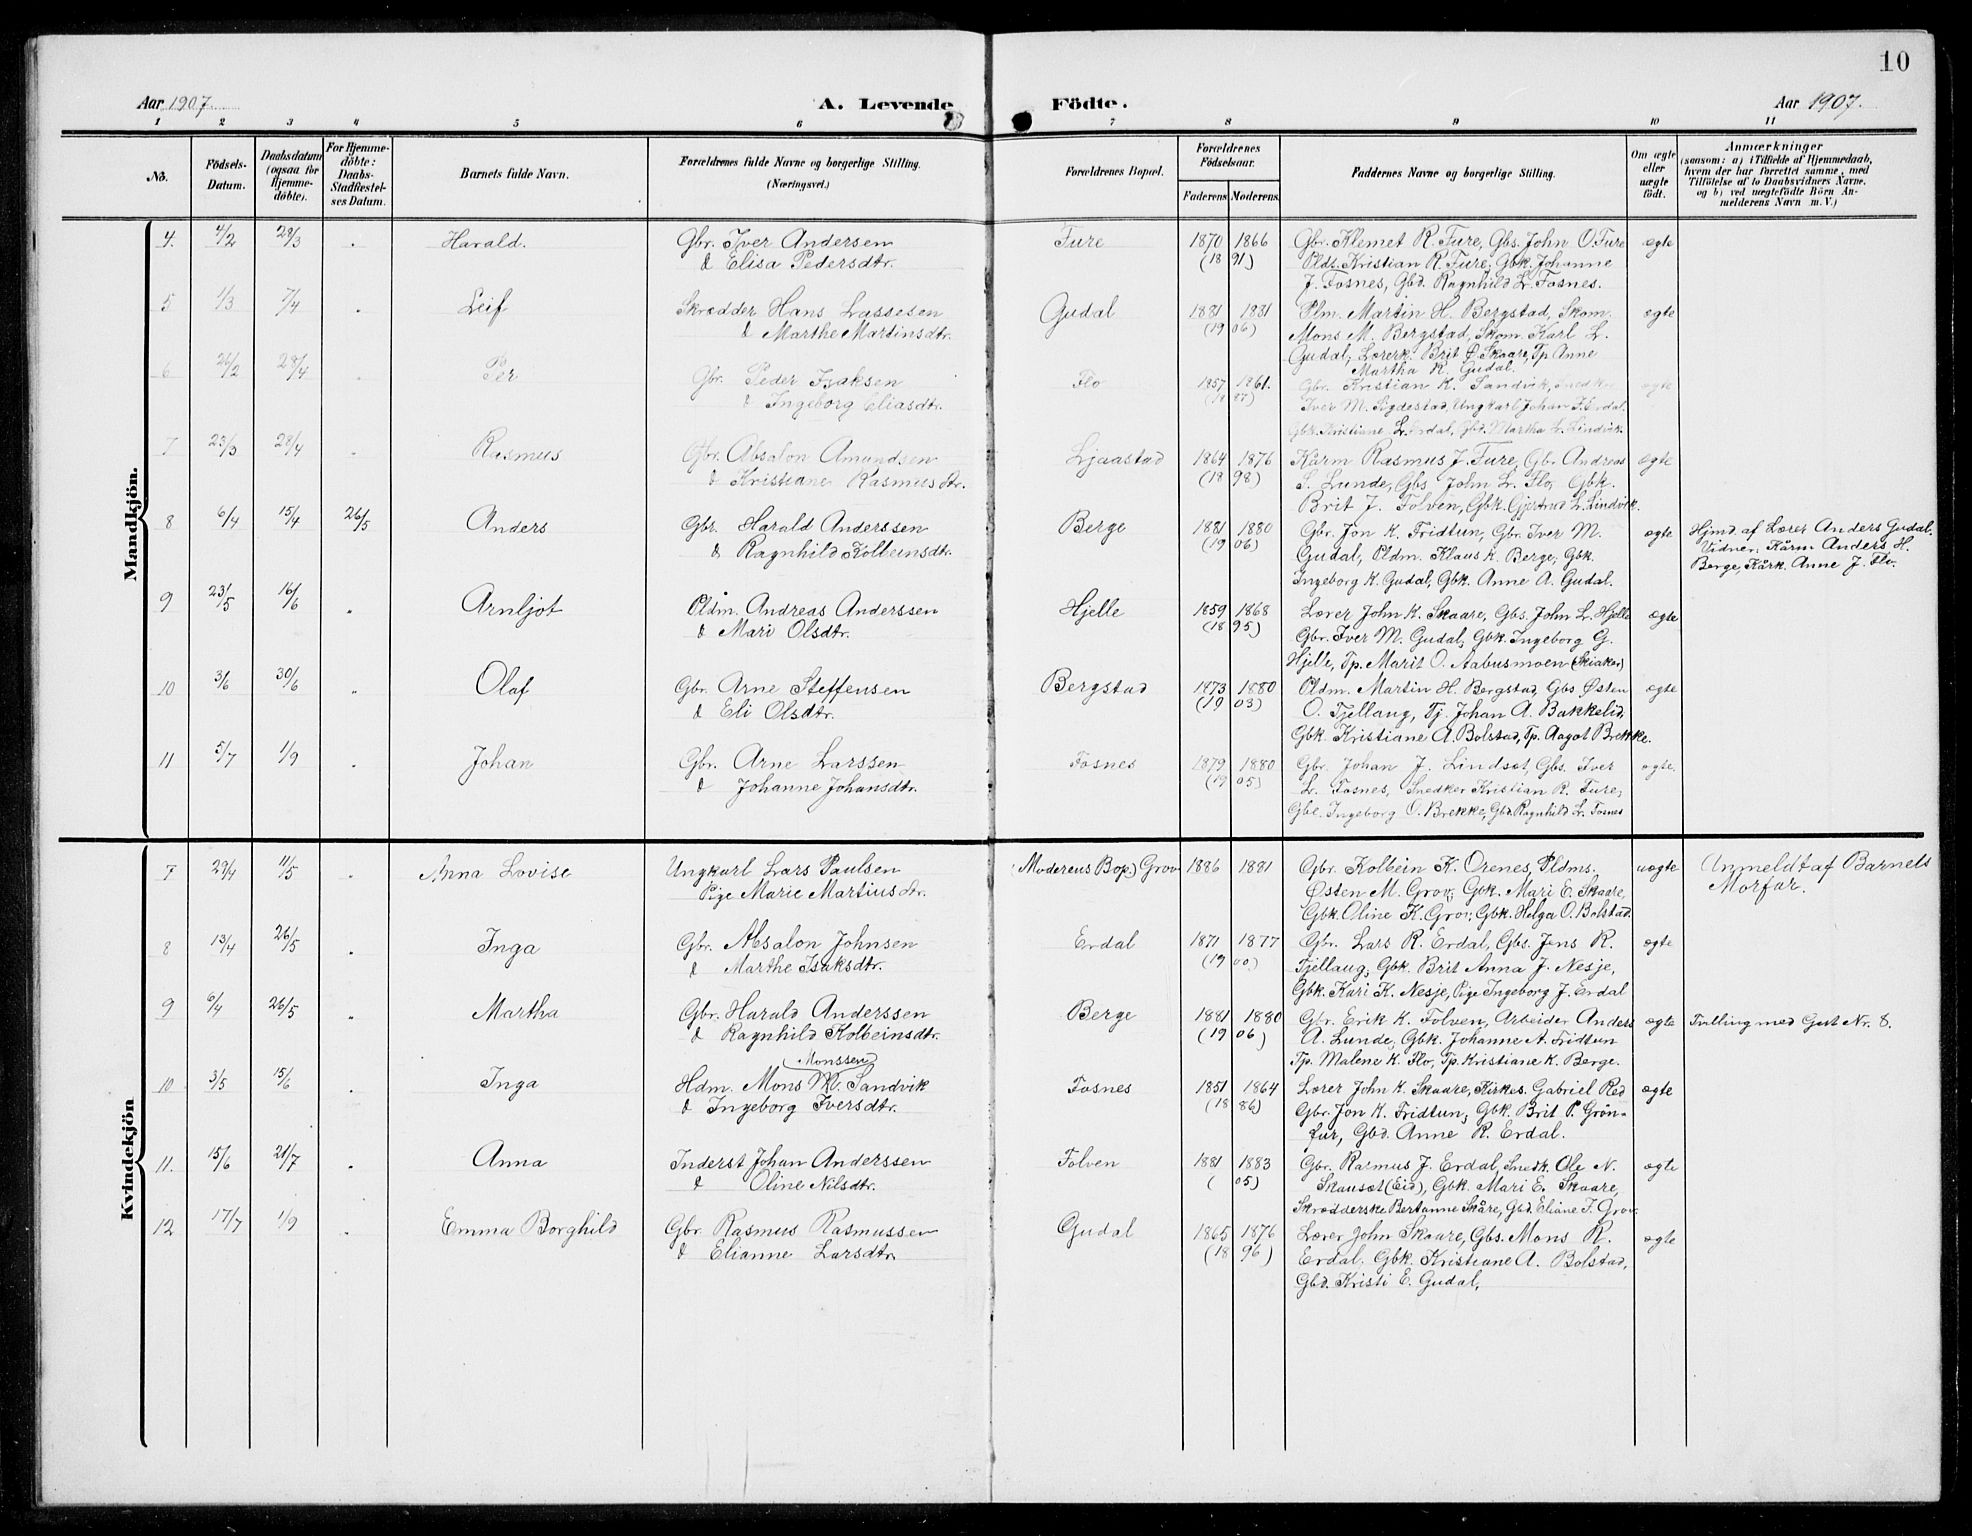 10
Aar 1907. A. Levende Födte. Aar 1907.
1 2 3 4 5 6 7 8 9 10 11
No. Födsels-Datum. Daabsdatum (ogsaa for Hjemme-döbte). For Hjemme-döbte: Daabs-Stadfæstel-ses Datum. Barnets fulde Navn. Forældrenes fulde Navne og borgerlige Stilling. (Næringsvei.) Forældrenes Bopæl. Forældrenes Födselsaar. Faderens Moderens. Faddernes Navne og borgerlige Stilling. Om ægte eller uægte födt. Anmærkninger (saasom: a) i Tilfælde af Hjemmedaab, hvem der har forrettet samme, med Tilföielse af to Daabsvidners Navne, og b) ved uægtefödte Börn An-melderens Navn m. V.)
Mandkjön.
4. 4/2 28/3 " Harald. Gbr. Iver Andersen Fure 1870 1866 Gbr. Klemet R. Fure, Gbs. John O. Fure ægte
& Elisa Pedersdtr. (18 91) Pldt. Kristian R. Fure, Gbk. Johanne
J. Fosnes, Gbd. Ragnhild L. Fosnes.
5 1/3 7/4 " Leif Skrædder Hans Lassesen Gudal 1881 1881 Plm. Martin H. Bergstad, Skom. ægte
& Marthe Martinsdtr. (19 06) Mons M. Bergstad, Skom. Karl L.
Gudal, Lærerk. Brit Ø. Skaare, Tp. Anne
Martha R. Gudal.
6 26/2 28/4 " Per Gbr. Peder Isaksen Flo 1857 1861. Gbr. Kristian K. Sandvik, Snedker ægte
& Ingeborg Eliasdtr. (18 87) Iver M. Sigdestad, Ungkarl Johan F. Erdal.
Gbk. Kristiane L. Erdal, Gbd. Martha L. Lindvik.
7 23/3 28/4 " Rasmus Gbr. Absalon Amundsen Ljaastad 1864 1876 Kårm Rasmus J. Fure, Gbr. Andreas ægte
& Kristiane Rasmusdtr. (18 98) S. Lunde, Gbs. John L. Flo, Gbk.
Brit J. Folven, Gbk. Gjertrud L. Lindvik.
8 6/4 15/4 26/5 Anders Gbr. Harald Anderssen Berge 1881 1880 Gbr. Jon K. Fridtun, Gbr. Iver M. ægte Hjmd. af Lærer Anders Gudal.
& Ragnhild Kolbeinsdtr. (19 06) Gudal, Pldm. Klaus K. Berge, Gbk. Vidner: Kårm Anders H.
Ingeborg K. Gudal, Gbk. Anne A. Gudal. Berge, Kårk. Anne J. Flo.
9 23/5 16/6 " Arnljot Pldm. Andreas Anderssen Hjelle 1859 1868 Lærer John K. Skaare, Gbs. John L. Hjelle ægte
& Mari Olsdtr. (18 95) Gbr. Iver M. Gudal, Gbk. Ingeborg G.
Hjelle, Tp. Marit O. Aabusmoen (Skiaker)
10 3/6 30/6 " Olaf Gbr. Arne Steffensen Bergstad 1873 1880 Pldm. Martin H. Bergstad, Gbs Østen ægte
& Eli Olsdtr. (19 03) O. Tjellaug, Tj. Johan A. Bakkelid,
Gbk. Kristiane A. Bolstad, Tp. Aagot Brekke.
11 5/7 1/9 " Johan Gbr. Arne Larssen Fosnes 1879 1880 Gbr. Johan J. Lindset, Gbs. Iver ægte.
& Johanne Johansdtr. (19 05) L. Fosnes, Snedker Kristian R. Fure,
Gbe. Ingeborg O. Brekke, Gbd. Ragnhild L. Fosnes
Kvindekjön
7 29/4 11/5 " Anna Lovise Ungkarl Lars Paulsen (Moderens Bop.) Grov 1886 1881 Gbr. Kolbein K. Orenes, Pldms. uægte Anmeldt af Barnets
Pige Marie Martiusdtr. Østen M. Grov, Gbk. Mari E. Skaare, Morfar.
Gbk. Oline K. Grov, Gbk. Helga O. Bolstad.
8 13/4 26/5 " Inga Gbr. Absalon Johnsen Erdal 1871 1877 Gbr. Lars R. Erdal, Gbs. Jens R. ægte
& Marthe Isaksdtr. (19 00.) Tjellaug, Gbk. Brit Anna J. Nesje,
Gbk. Kari K. Nesje, Pige Ingeborg J. Erdal
9 6/4 26/5 " Martha Gbr. Harald Anderssen Berge 1881 1880 Gbr. Erik K. Folven, Arbeider Anders ægte Tvilling med Gut Nr. 8.
& Ragnhild Kolbeinsdtr. (19 06) A. Lunde, Gbk. Johanne A. Fridtun
Tp. Malene K. Flo, Tp. Kristiane K. Berge.
Monssen
10 3/5 15/6 " Inga Hdm. Mons M. Sandvik Fosnes 1851 1864 Lærer John K. Skaare, Kirkes. Gabriel Red ægte
& Ingeborg Iversdtr. (18 86) Gbr. Jon K. Fridtun, Gbk. Brit P. Grön-
fur, Gbd. Anne R. Erdal.
11. 15/6 21/7 " Anna Inderst Johan Anderssen Folven 1881 1883 Gbr. Rasmus J. Erdal, Snedk. Ole N. ægte
& Oline Nilsdtr. ( 05) Skauset (Eid), Gbk. Mari E. Skaare,
Skrædderske Bertanne Skåre, Gbd. Eliane J. Grov.
12 17/7 1/9 " Emma Borghild Gbr. Rasmus Rasmussen Gudal 1865 1876 Lærer John Skaare, Gbs. Mons R. ægte
& Elianne Larsdtr. (18 96) Erdal, Gbk. Kristiane A. Bolstad,
Gbd. Kristi E. Gudal,